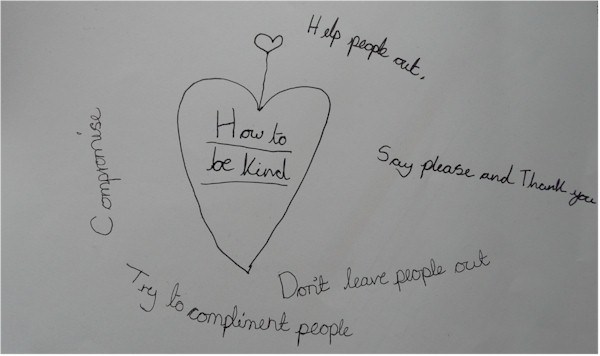 How to
be Kind
Help people out.
Say please and Thank you
Don't leave people out
Try to compliment people
Compromise